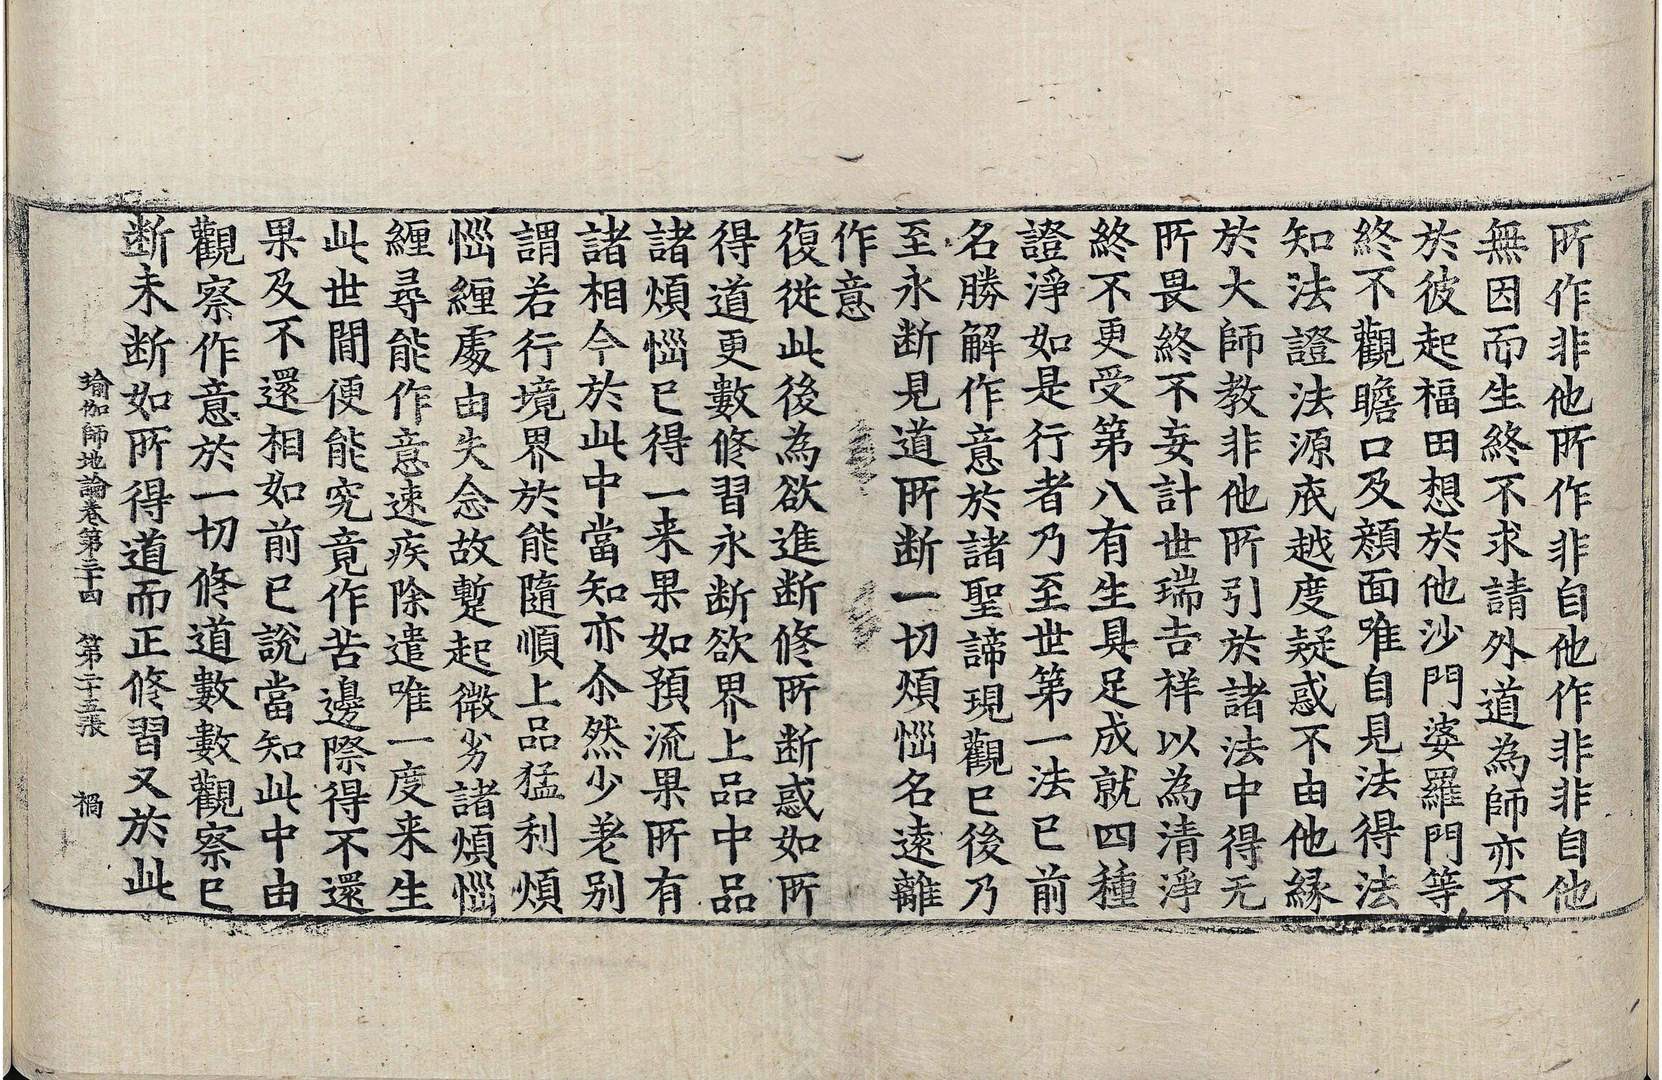 所作非他所作非自他作非非自他
無因而生終不求請外道為師亦不
於彼起福田想於他沙門婆羅門等
終不觀瞻口及顏面唯自見法得法
知法證法源底越度疑惑不由他緣
於大師教非他所引於諸法中得无
所畏終不妄計世瑞吉祥以為清淨
終不更受第八有生具足成就四種
證淨如是行者乃至世第一法已前
名勝解作意於諸聖諦現觀已後乃
至永断見道所断一切煩惱名遠離
作意
復從此後為欲進断修所断惑如所
得道更數修習永断欲界上品中品
諸煩惱已得一来果如預流果所有
諸相今於此中當知亦尒然少差別
謂若行境界於能隨順上品猛利煩
惱纏處由失念故暫起微劣諸煩惱
纏尋能作意速疾除遣唯一度来生
此世間便能究竟作苦邊際得不還
果及不還相如前已說當知此中由
觀察作意於一切修道數數觀察已
断未断如所得道而正修習又於此
瑜伽師地論卷第三十四 第二十五張 禍